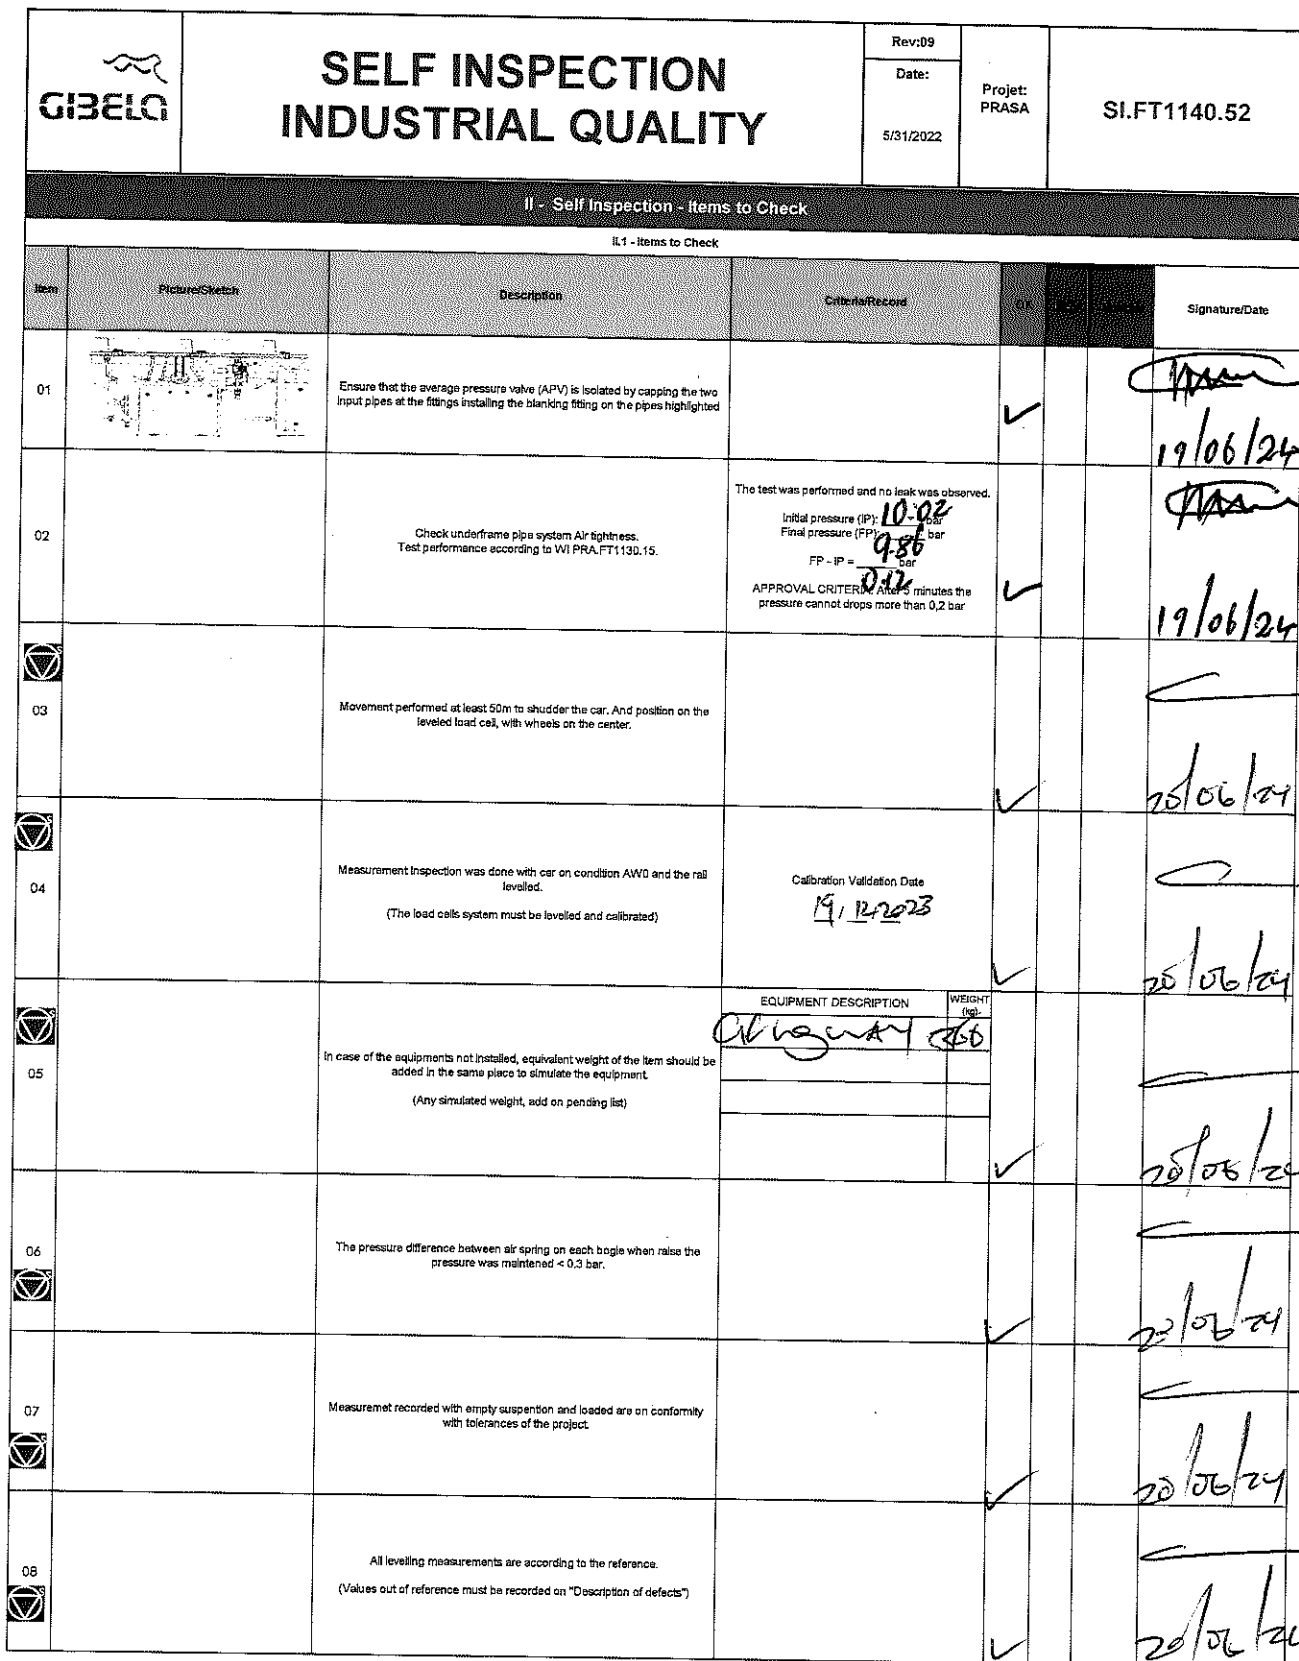 GIBELA
SELF INSPECTION
INDUSTRIAL QUALITY
Rev:09
Date:
5/31/2022
Projet:
PRASA
SI.FT1140.52
II - Self Inspection - Items to Check
II.1 - Items to Check
Item
Picture/Sketch
Description
Criteria/Record
OK
Signature/Date
01
Ensure that the average pressure valve (APV) is isolated by capping the two
input pipes at the fittings installing the blanking fitting on the pipes highlighted
19/06/24
02
Check underframe pipe system Air tightness.
Test performance according to WI PRA.FT1130.15.
The test was performed and no leak was observed.
Initial pressure (IP): 10.02 bar
Final pressure (FP): 9.86 bar
FP - IP = 0.12 bar
APPROVAL CRITERIA: After 5 minutes the
pressure cannot drops more than 0,2 bar
19/06/24
03
Movement performed at least 50m to shudder the car. And position on the
leveled load cell, with wheels on the center.
20/06/24
04
Measurement Inspection was done with car on condition AW0 and the rail
levelled.
(The load cells system must be levelled and calibrated)
Calibration Validation Date
19/12/2023
20/06/24
05
In case of the equipments not installed, equivalent weight of the item should be
added in the same place to simulate the equipment.
(Any simulated weight, add on pending list)
EQUIPMENT DESCRIPTION
WEIGHT
(kg)
20/06/24
06
The pressure difference between air spring on each bogie when raise the
pressure was maintened < 0.3 bar.
20/06/24
07
Measuremet recorded with empty suspention and loaded are on conformity
with tolerances of the project.
20/06/24
08
All levelling measurements are according to the reference.
(Values out of reference must be recorded on "Description of defects")
20/06/24